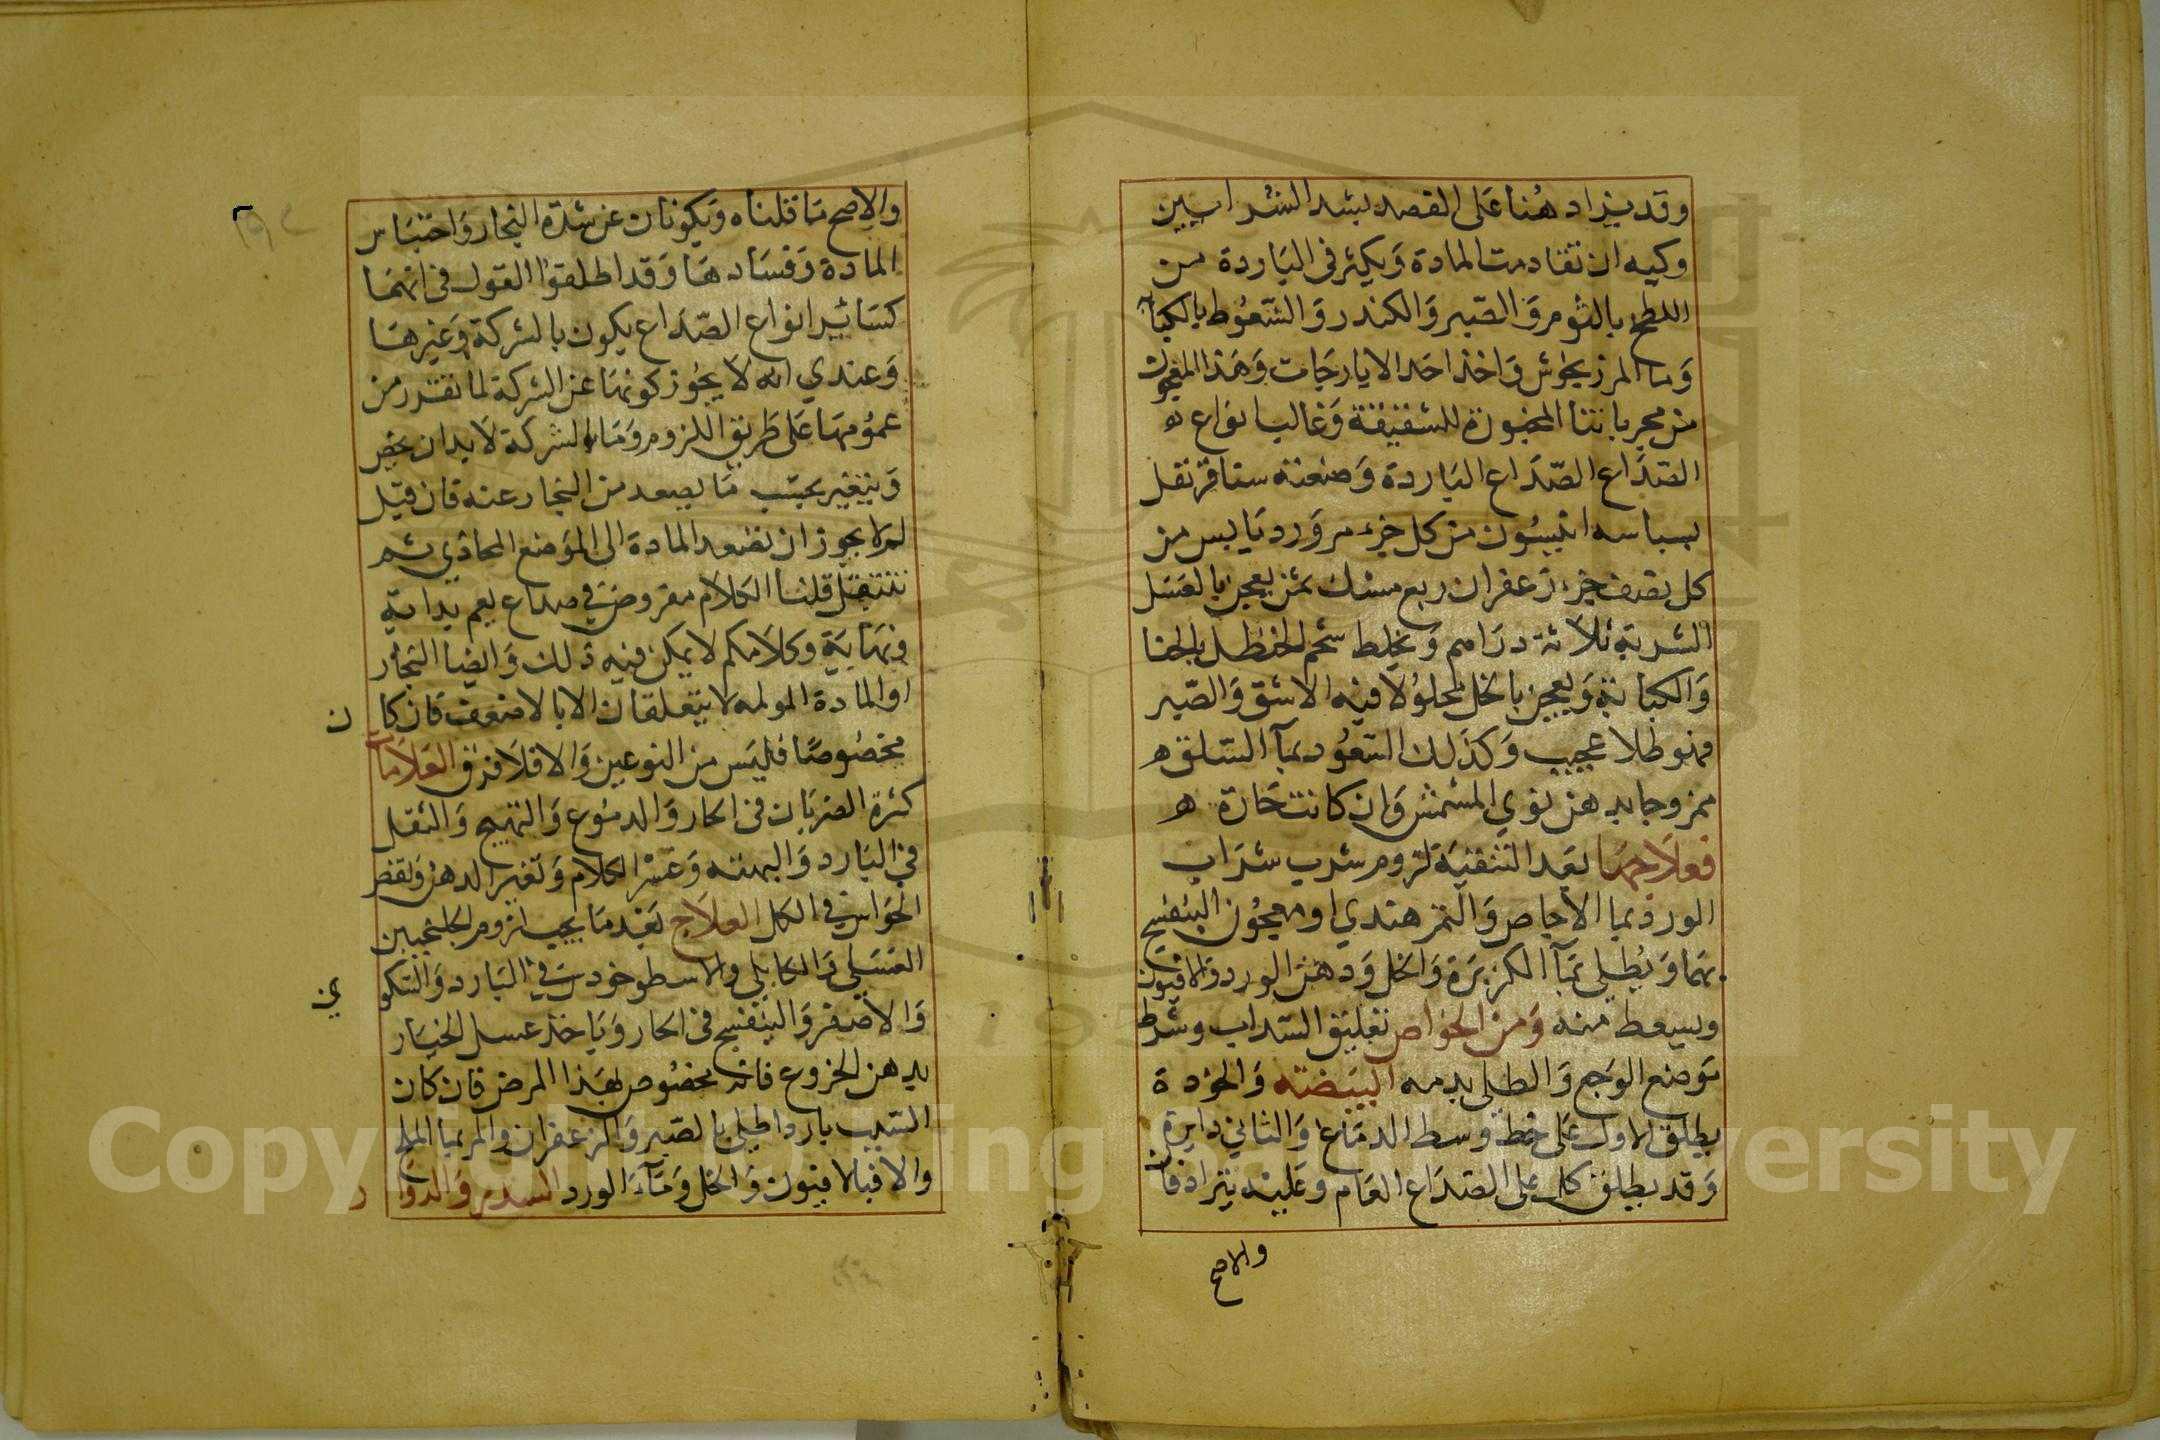 وقد يزاد هنا على الفصد بشد الشرايين
وكيه ان تقادمت المادة ويكثر في الباردة من
اللطخ بالثوم والصبر والكندر والسعوط بالكبابة
وماء المرزنجوش واخذ احد الايارجات وهذا المعجون
من مجرباتنا المخبورة للشقيقة وغالب انواع
الصداع الصداع الباردة وصنعته سنا قرنفل
بسباسه انيسون من كل جزء مر ورد يابس من
كل نصف جزء زعفران ربع مسك ثمن يعجن بالعسل
الشربة ثلاثة دراهم ويخلط شحم الحنظل بالحنا
والكبابة ويعجن بالخل محلولا فيه الاشق والصبر
فهو طلا عجيب وكذلك السعوط بماء السلق
ممزوجا بدهن نوي المشمش وان كانت حارة
فعلاجها بعد التنقية لزوم شرب شراب
الورد بما الاجاص والتمر هندي او معجون البنفسج
بهما ويطلى بماء الكزبرة والخل ودهن الورد والافيون
ويسعط منه ومن الخواص تعليق السداب وشرط
موضع الوجع والطلى بدمه البيضة والخودة
يطلق الاول على خط وسط الدماغ والثاني دايرة
وقد يطلق كل على الصداع العام وعليه يتراد فان
والاصح
والاصح ما قلناه ويكونان عن شدة البخار واحتباس
المادة وفسادها وقد اطلقوا القول في انهما
كسائر انواع الصداع يكون بالشركة وغيرها
وعندي انه لا يجوز كونهما عن الشركة لما تقرر من
عمومها على طريق اللزوم وما بالشركة لا بد ان يخص
ويتغير بحسب ما يصعد من البخار عنه فان قيل
لم لا يجوز ان تصعد المادة الى الموضع المحاذي ثم
تنتقل قلنا الكلام مفروض في صداع يعم بداية
ونهاية وكلامكم لا يمكن فيه ذلك وايضا البخار
او المادة المولمه لا يتعلقان الا بالاضعف فان كان
مخصوصا فليس من النوعين والا فلا فرق العلامات
كثرة الضربان في الحار والدموع والتهيج والثقل
في البارد والبهتة وعسر الكلام وتغير الدهن ونقص
الحواس في الكل العلاج بعد ما يجب لزوم الجلنجبين
العسلي والكابلي والاسطوخودس في البارد والسكري
والاصفر والبنفسج في الحار وياخذ عسل الخيار
بدهن الخروع فانه مخصوص بهذا المرض فان كان
السبب باردا طلي بالصبر والزعفران والمر بما الملح
والا فبالافيون والخل وماء الورد السدر والدوار